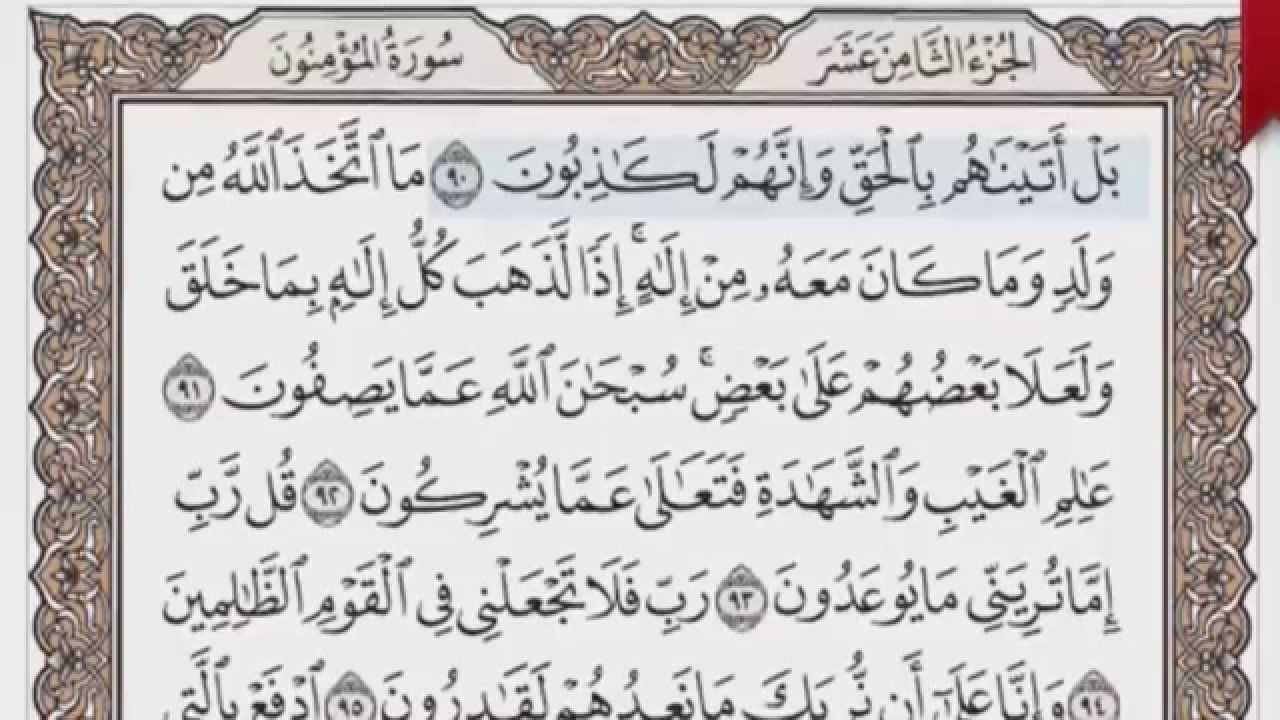 الجزء الثامن عشر
سورة المؤمنون
بَلْ أَتَيْنَٰهُم بِٱلْحَقِّ وَإِنَّهُمْ لَكَٰذِبُونَ ٩٠ مَا ٱتَّخَذَ ٱللَّهُ مِن
وَلَدٍ وَمَا كَانَ مَعَهُۥ مِنْ إِلَٰهٍ ۚ إِذًا لَّذَهَبَ كُلُّ إِلَٰهٍۭ بِمَا خَلَقَ
وَلَعَلَا بَعْضُهُمْ عَلَىٰ بَعْضٍ ۚ سُبْحَٰنَ ٱللَّهِ عَمَّا يَصِفُونَ ٩١
عَٰلِمِ ٱلْغَيْبِ وَٱلشَّهَٰدَةِ فَتَعَٰلَىٰ عَمَّا يُشْرِكُونَ ٩٢ قُل رَّبِّ
إِمَّا تُرِيَنِّى مَا يُوعَدُونَ ٩٣ رَبِّ فَلَا تَجْعَلْنِى فِى ٱلْقَوْمِ ٱلظَّٰلِمِينَ
٩٤ وَإِنَّا عَلَىٰٓ أَن نُّرِيَكَ مَا نَعِدُهُمْ لَقَٰدِرُونَ ٩٥ ٱدْفَعْ بِٱلَّتِى